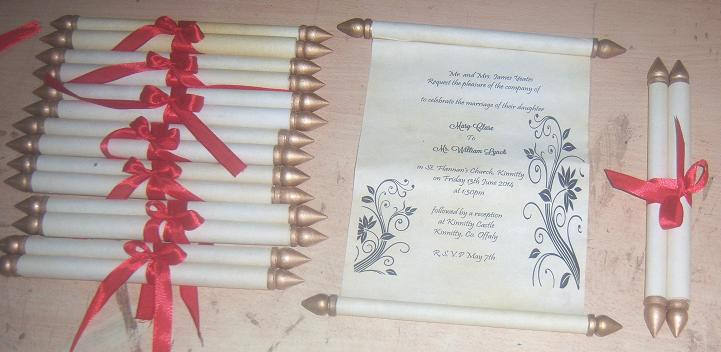 Mr. and Mrs. James Yeates
Request the pleasure of the company of
to celebrate the marriage of their daughter
Mary Clare
To
Mr. William Lynch
in St. Flannan's Church, Kinnitty
on Friday 13th June 2014
at 1.30pm
followed by a reception
at Kinnitty Castle
Kinnitty, Co. Offaly
R.S.V.P May 7th